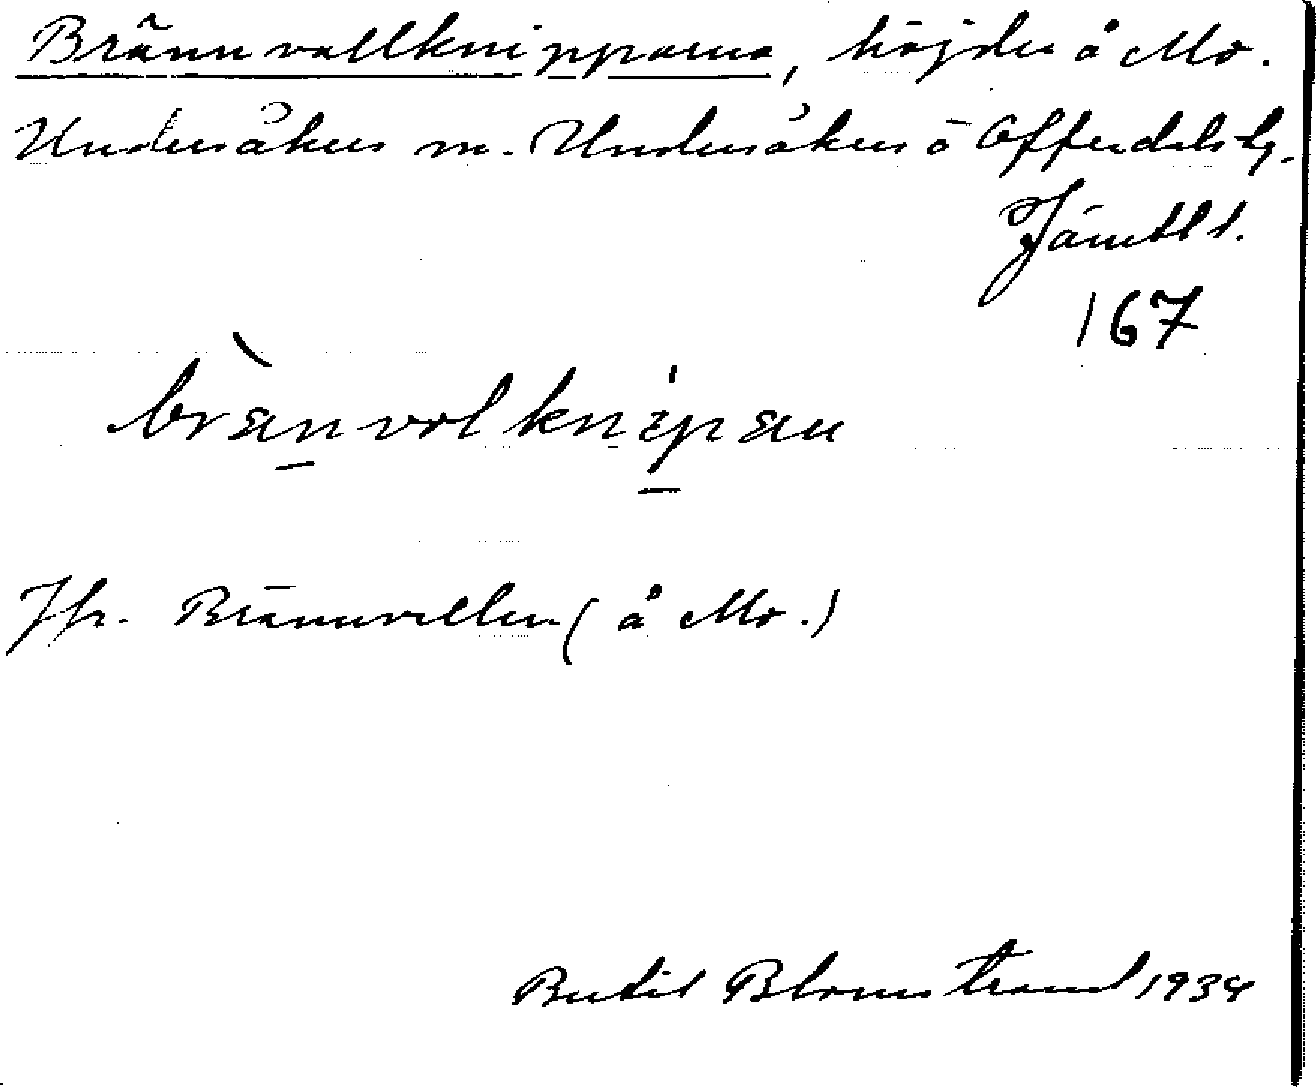 Brännvallknipparna, höjder å Mo.
Undersåkers sn. Undersåkers o Offerdals tg.
Jämtl l.
167
brànvolknipan
Jfr. Brännvallen (å Mo.)
Bertil Blomstrand 1934